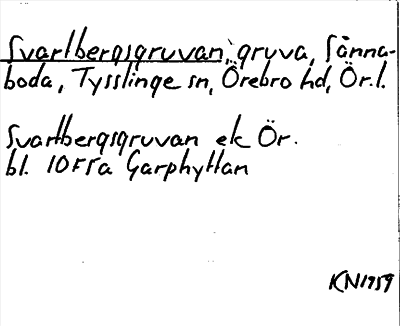 Svartbergsgruvan, gruva, Sänna-
boda, Tysslinge sn, Örebro hd, Ör.l.
Svartbergsgruvan ek Ör.
bl. 10F5a Garphyttan
KN1959